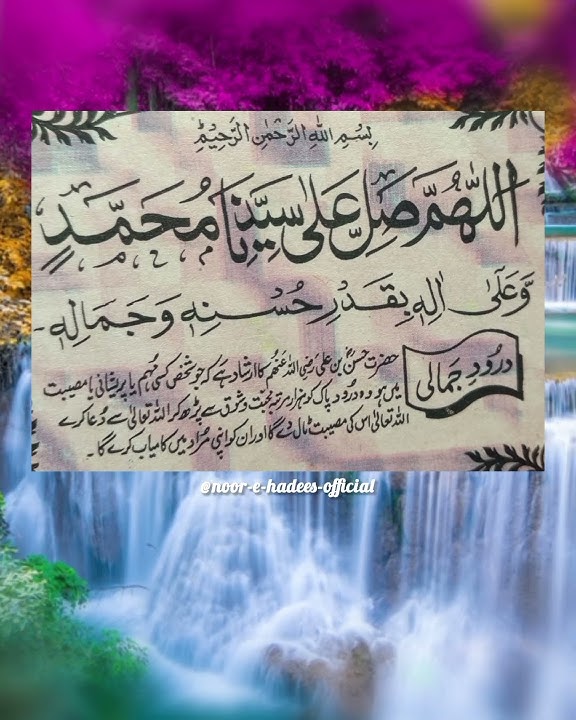 بِسْمِ اللهِ الرَّحْمٰنِ الرَّحِيْمِ
اَللّٰهُمَّ صَلِّ عَلٰى سَيِّدِنَا مُحَمَّدٍ
وَّعَلٰٓى اٰلِهٖ بِقَدْرِ حُسْنِهٖ وَجَمَالِهٖ
درُودِ جمالی
حضرت حسنؓ بن علی رضی اللہ عنہم کا ارشاد ہے کہ جو شخص کسی مُہم یا پریشانی یا مصیبت
میں ہو وہ درُود پاک کو ہزار مرتبہ محبّت و شوق سے پڑھ کر اللہ تعالیٰ سے دُعا کرے
اللہ تعالیٰ اس کی مصیبت ٹال دے گا اور ان کو اپنی مُراد میں کامیاب کرے گا۔
@noor-e-hadees-official